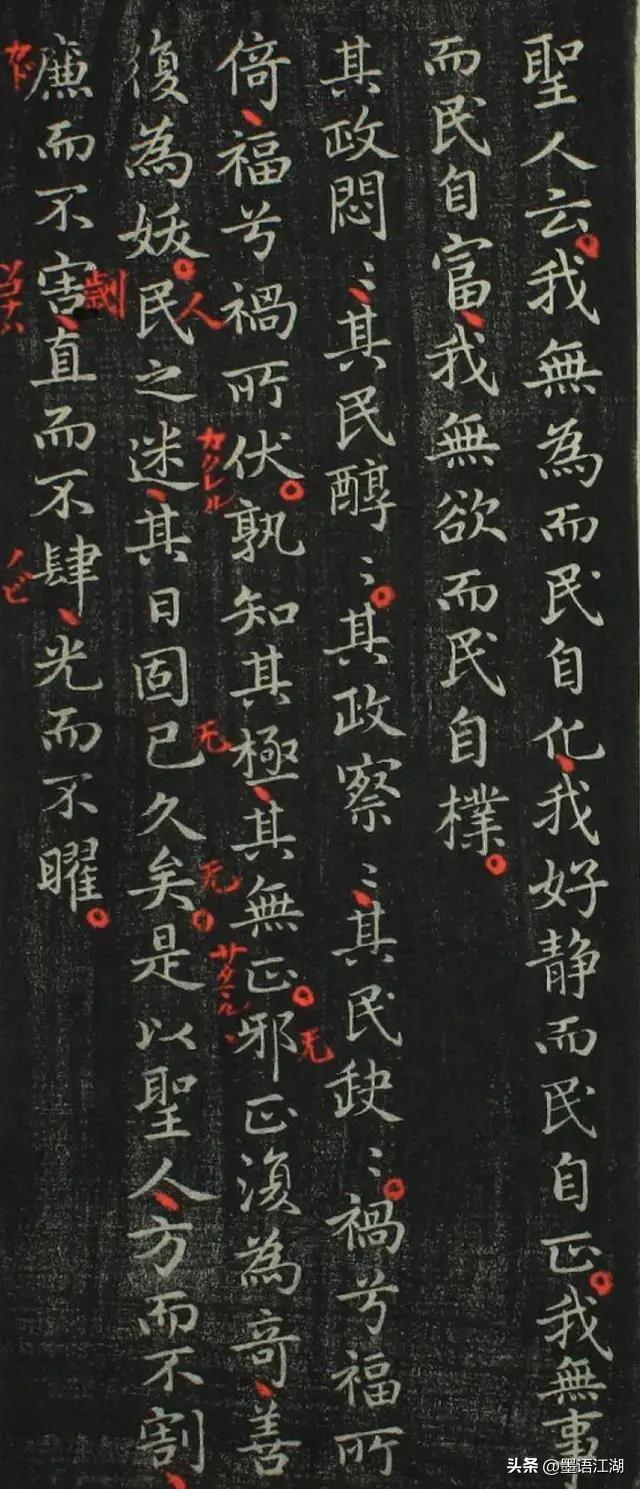 聖人云我無為而民自化我好静而民自正我無事
而民自富我無欲而民自樸
其政悶〻其民醇〻其政察〻其民缺〻禍兮福所
倚福兮禍所伏孰知其極其無正邪正復為奇善
復為妖民之迷其日固已久矣是以聖人方而不割
廉而不害直而不肆光而不曜
人
カクレル
无
无
サダマル
无
劌
カド
ノビ
头条 @墨语江湖